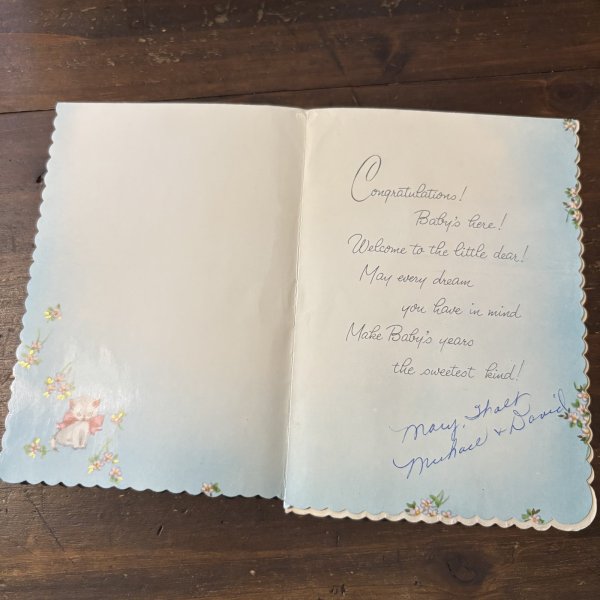 Congratulations!
Baby's here!
Welcome to the little dear!
May every dream
you have in mind
Make Baby's years
the sweetest kind!
Mary,
Michael & David